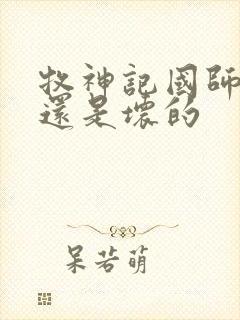 牧神記國師
還是壞的
呆若萌